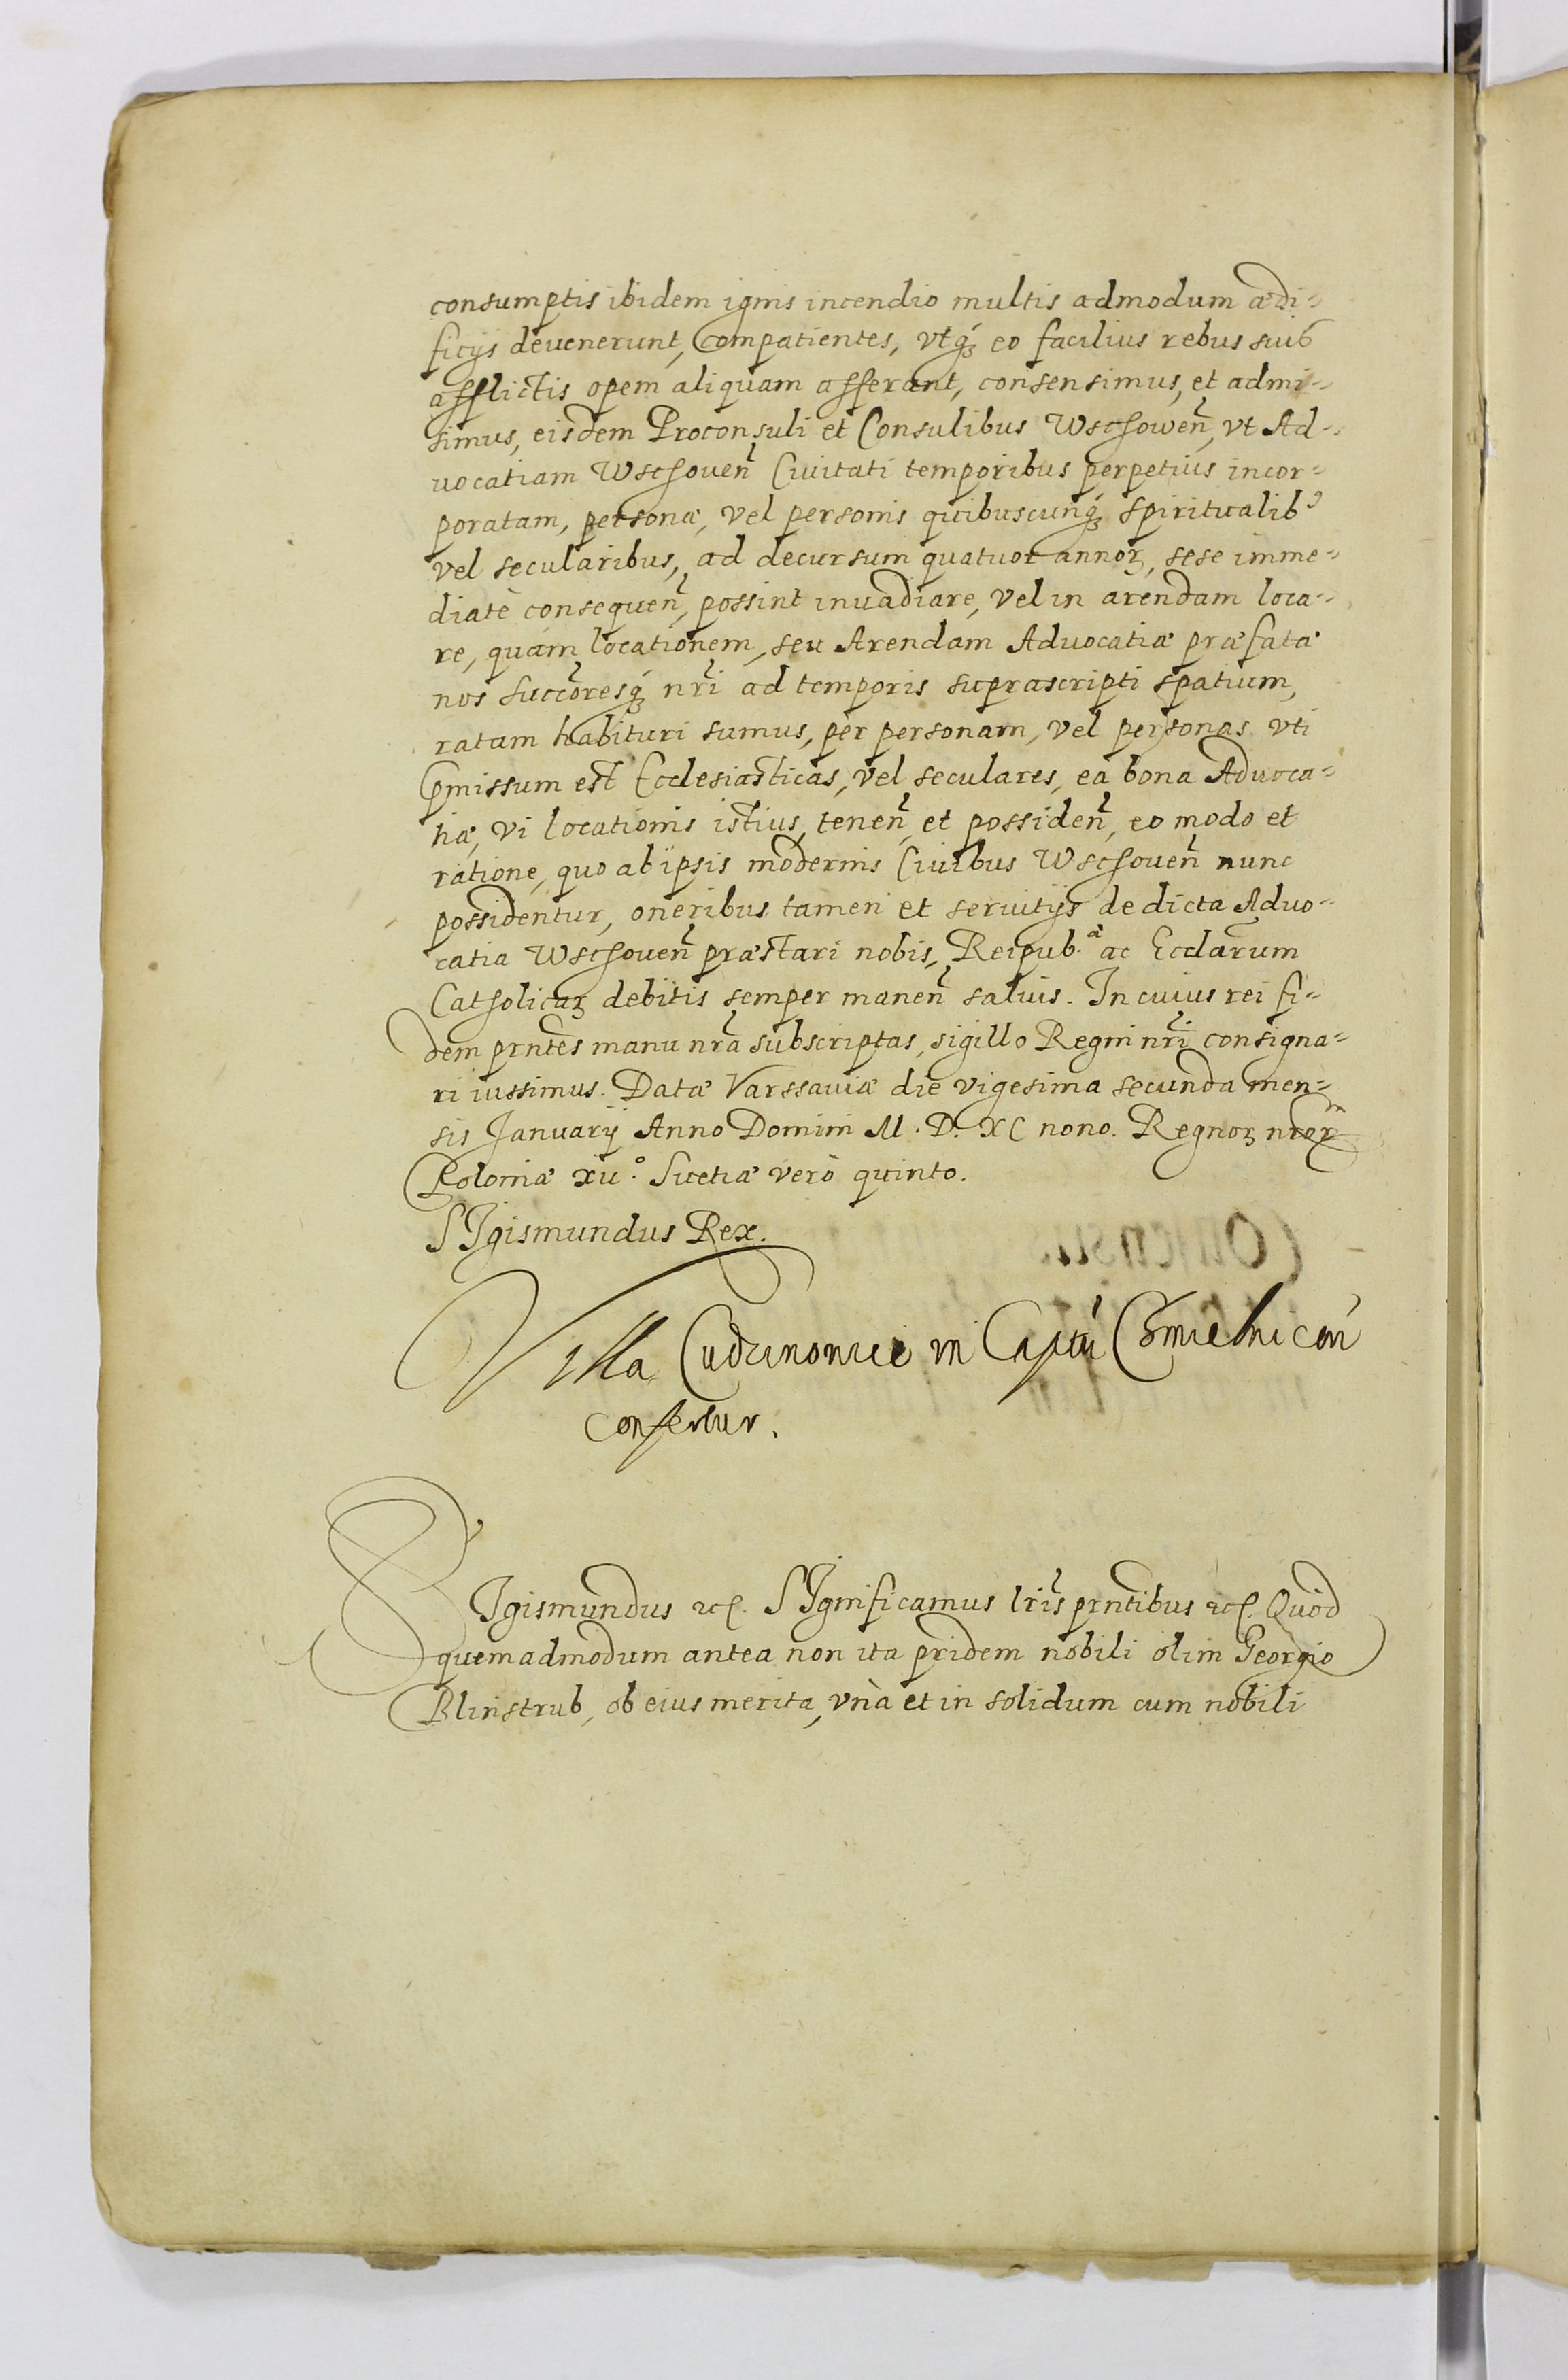 consumptis ibidem ignis incendio multis admodum ædi-
ficijs deuenerunt, Compatientes, vtq́ꝫ eo facilius rebus suis
afflictis opem aliquam afferant, consensimus, et admi-
simus, eisdem Proconsuli et Consulibus Wschowen̄, vt Ad-
uocatiam Wschouen̄ Ciuitati temporibus perpetuis incor-
poratam, personæ, vel personis quibuscunq́ꝫ spiritualibꝰ
vel secularibus, ad decursum quatuor annoꝝ, sese imme-
diatè consequen̄, possint inuadiare, vel in arendam loca-
re, quam locationem, seu Arendam Aduocatiæ præfatæ
nos succōresq́ꝫ nr̄i ad temporis suprascripti spatium,
ratam habituri sumus, per personam, vel personas vti
p̄missum est Ecclesiasticas, vel seculares, ea bona Aduoca-
tiæ, vi locationis istius, tenen̄, et possiden̄, eo modo et
ratione, quo ab ipsis modernis Ciuibus Wschouen̄ nunc
possidentur, oneribus tamen et seruitijs de dicta Aduo-
catia Wschouen̄ præstari nobis, Reipub.ᵃ ac Eccl̄arum
Catholicaꝝ debitis semper manen̄ saluis. In cuius rei fi-
dem prn̄tes manu nr̄a subscriptas, sigillo Regni nr̄i consigna-
ri iussimus. Datæ Varssauiæ die vigesima secunda men-
sis Januarij Anno Domini M. D. XC nono. Regnoꝝ nr̄oꝝ
Poloniæ xii.° Suetiæ verò quinto.
SIgismundus Rex.
Villa in Captū Chmielnicen̄
confertur.
SIgismundus etc. SIgnificamus lr̄is prn̄tibus etc. Quod
quemadmodum antea non ita pridem nobili olim Georgio
Blinstrub, ob eius merita, vnà et in solidum cum nobili